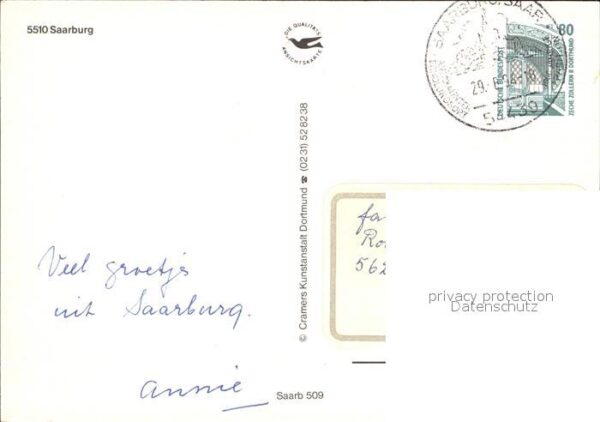 5510 Saarburg
DIE QUALITÄTS
ANSICHTSKARTE
SAARBURG, SAAR
29.
54439
80
DEUTSCHE BUNDESPOST
ZECHE ZOLLERN II DORTMUND
© Cramers Kunstanstalt Dortmund ☎ (02 31) 52 82 38
Veel groetjes
uit Saarburg.
Annie
fa
Ro
562
privacy protection
Datenschutz
Saarb 509